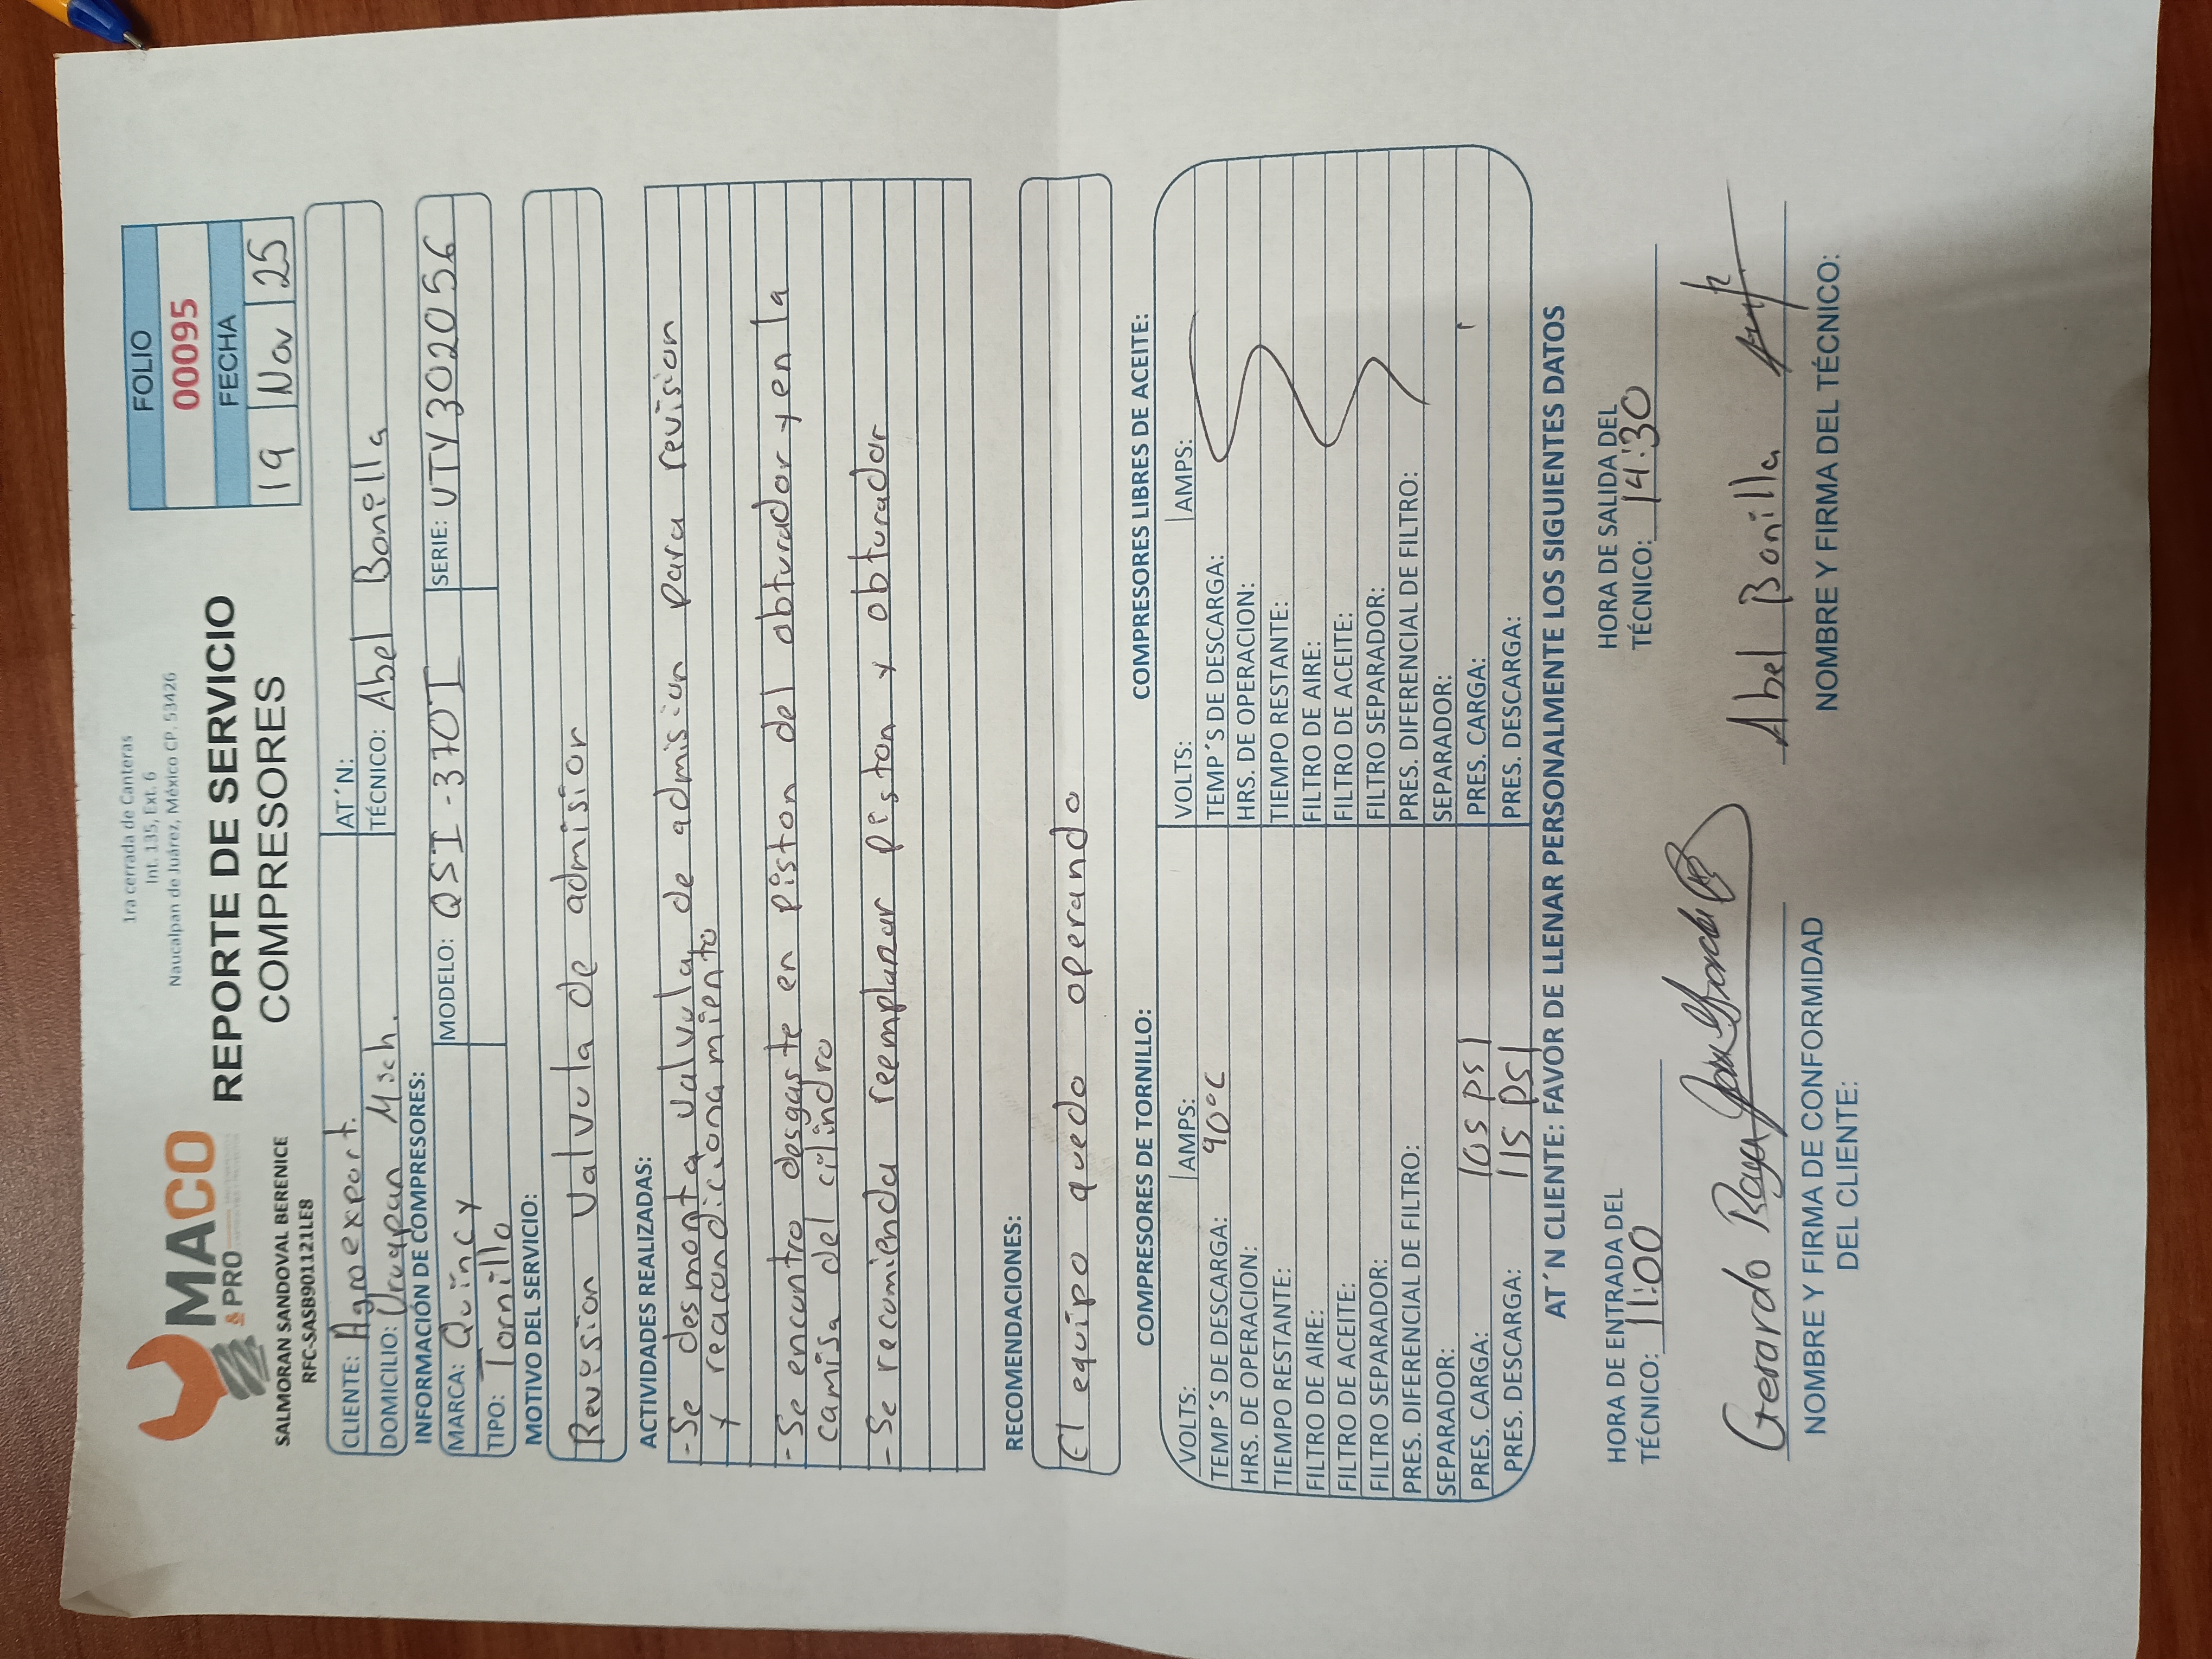 MACO
& PRO
SALMORAN SANDOVAL BERENICE
RFC-SASB901121LE8
1ra cerrada de Canteras
Int. 135, Ext. 6
Naucalpan de Juárez, México CP. 53426
REPORTE DE SERVICIO
COMPRESORES
FOLIO
00095
FECHA
19 Nov 25
CLIENTE: Agroexport. AT´N:
DOMICILIO: Uruapan Mich. TÉCNICO: Abel Bonilla
INFORMACIÓN DE COMPRESORES:
MARCA: Quincy MODELO: QSI-370I SERIE: UTY302056
TIPO: Tornillo
MOTIVO DEL SERVICIO:
Revision Valvula de admision
ACTIVIDADES REALIZADAS:
-Se desmonta valvula de admision para revision
y reacondicionamiento
-Se encontro desgaste en piston del obturador y en la
camisa del cilindro
-Se recomienda reemplazar piston y obturador
RECOMENDACIONES:
El equipo quedo operando
COMPRESORES DE TORNILLO: COMPRESORES LIBRES DE ACEITE:
VOLTS: AMPS: VOLTS: AMPS:
TEMP´S DE DESCARGA: 90°C TEMP´S DE DESCARGA:
HRS. DE OPERACION: HRS. DE OPERACION:
TIEMPO RESTANTE: TIEMPO RESTANTE:
FILTRO DE AIRE: FILTRO DE AIRE:
FILTRO DE ACEITE: FILTRO DE ACEITE:
FILTRO SEPARADOR: FILTRO SEPARADOR:
PRES. DIFERENCIAL DE FILTRO: PRES. DIFERENCIAL DE FILTRO:
SEPARADOR: SEPARADOR:
PRES. CARGA: 105 PSI PRES. CARGA:
PRES. DESCARGA: 115 PSI PRES. DESCARGA:
AT´N CLIENTE: FAVOR DE LLENAR PERSONALMENTE LOS SIGUIENTES DATOS
HORA DE ENTRADA DEL HORA DE SALIDA DEL
TÉCNICO: 11:00 TÉCNICO: 14:30
Gerardo Abel Bonilla
NOMBRE Y FIRMA DE CONFORMIDAD NOMBRE Y FIRMA DEL TÉCNICO:
DEL CLIENTE: